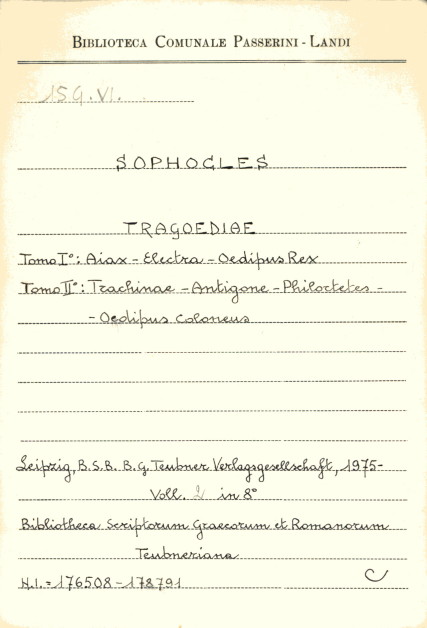 BIBLIOTECA COMUNALE PASSERINI - LANDI
15 G. VI.
SOPHOCLES
TRAGOEDIAE
Tomo I°: Aiax - Electra - Oedipus Rex
Tomo II°: Trachinae - Antigone - Philoctetes -
- Oedipus Coloneus
Leipzig, B.S.B. B.G. Teubner Verlagsgesellschaft, 1975-
Voll. 2 in 8°
Bibliotheca Scriptorum Graecorum et Romanorum
Teubneriana
N.I. = 176508 - 178791
C